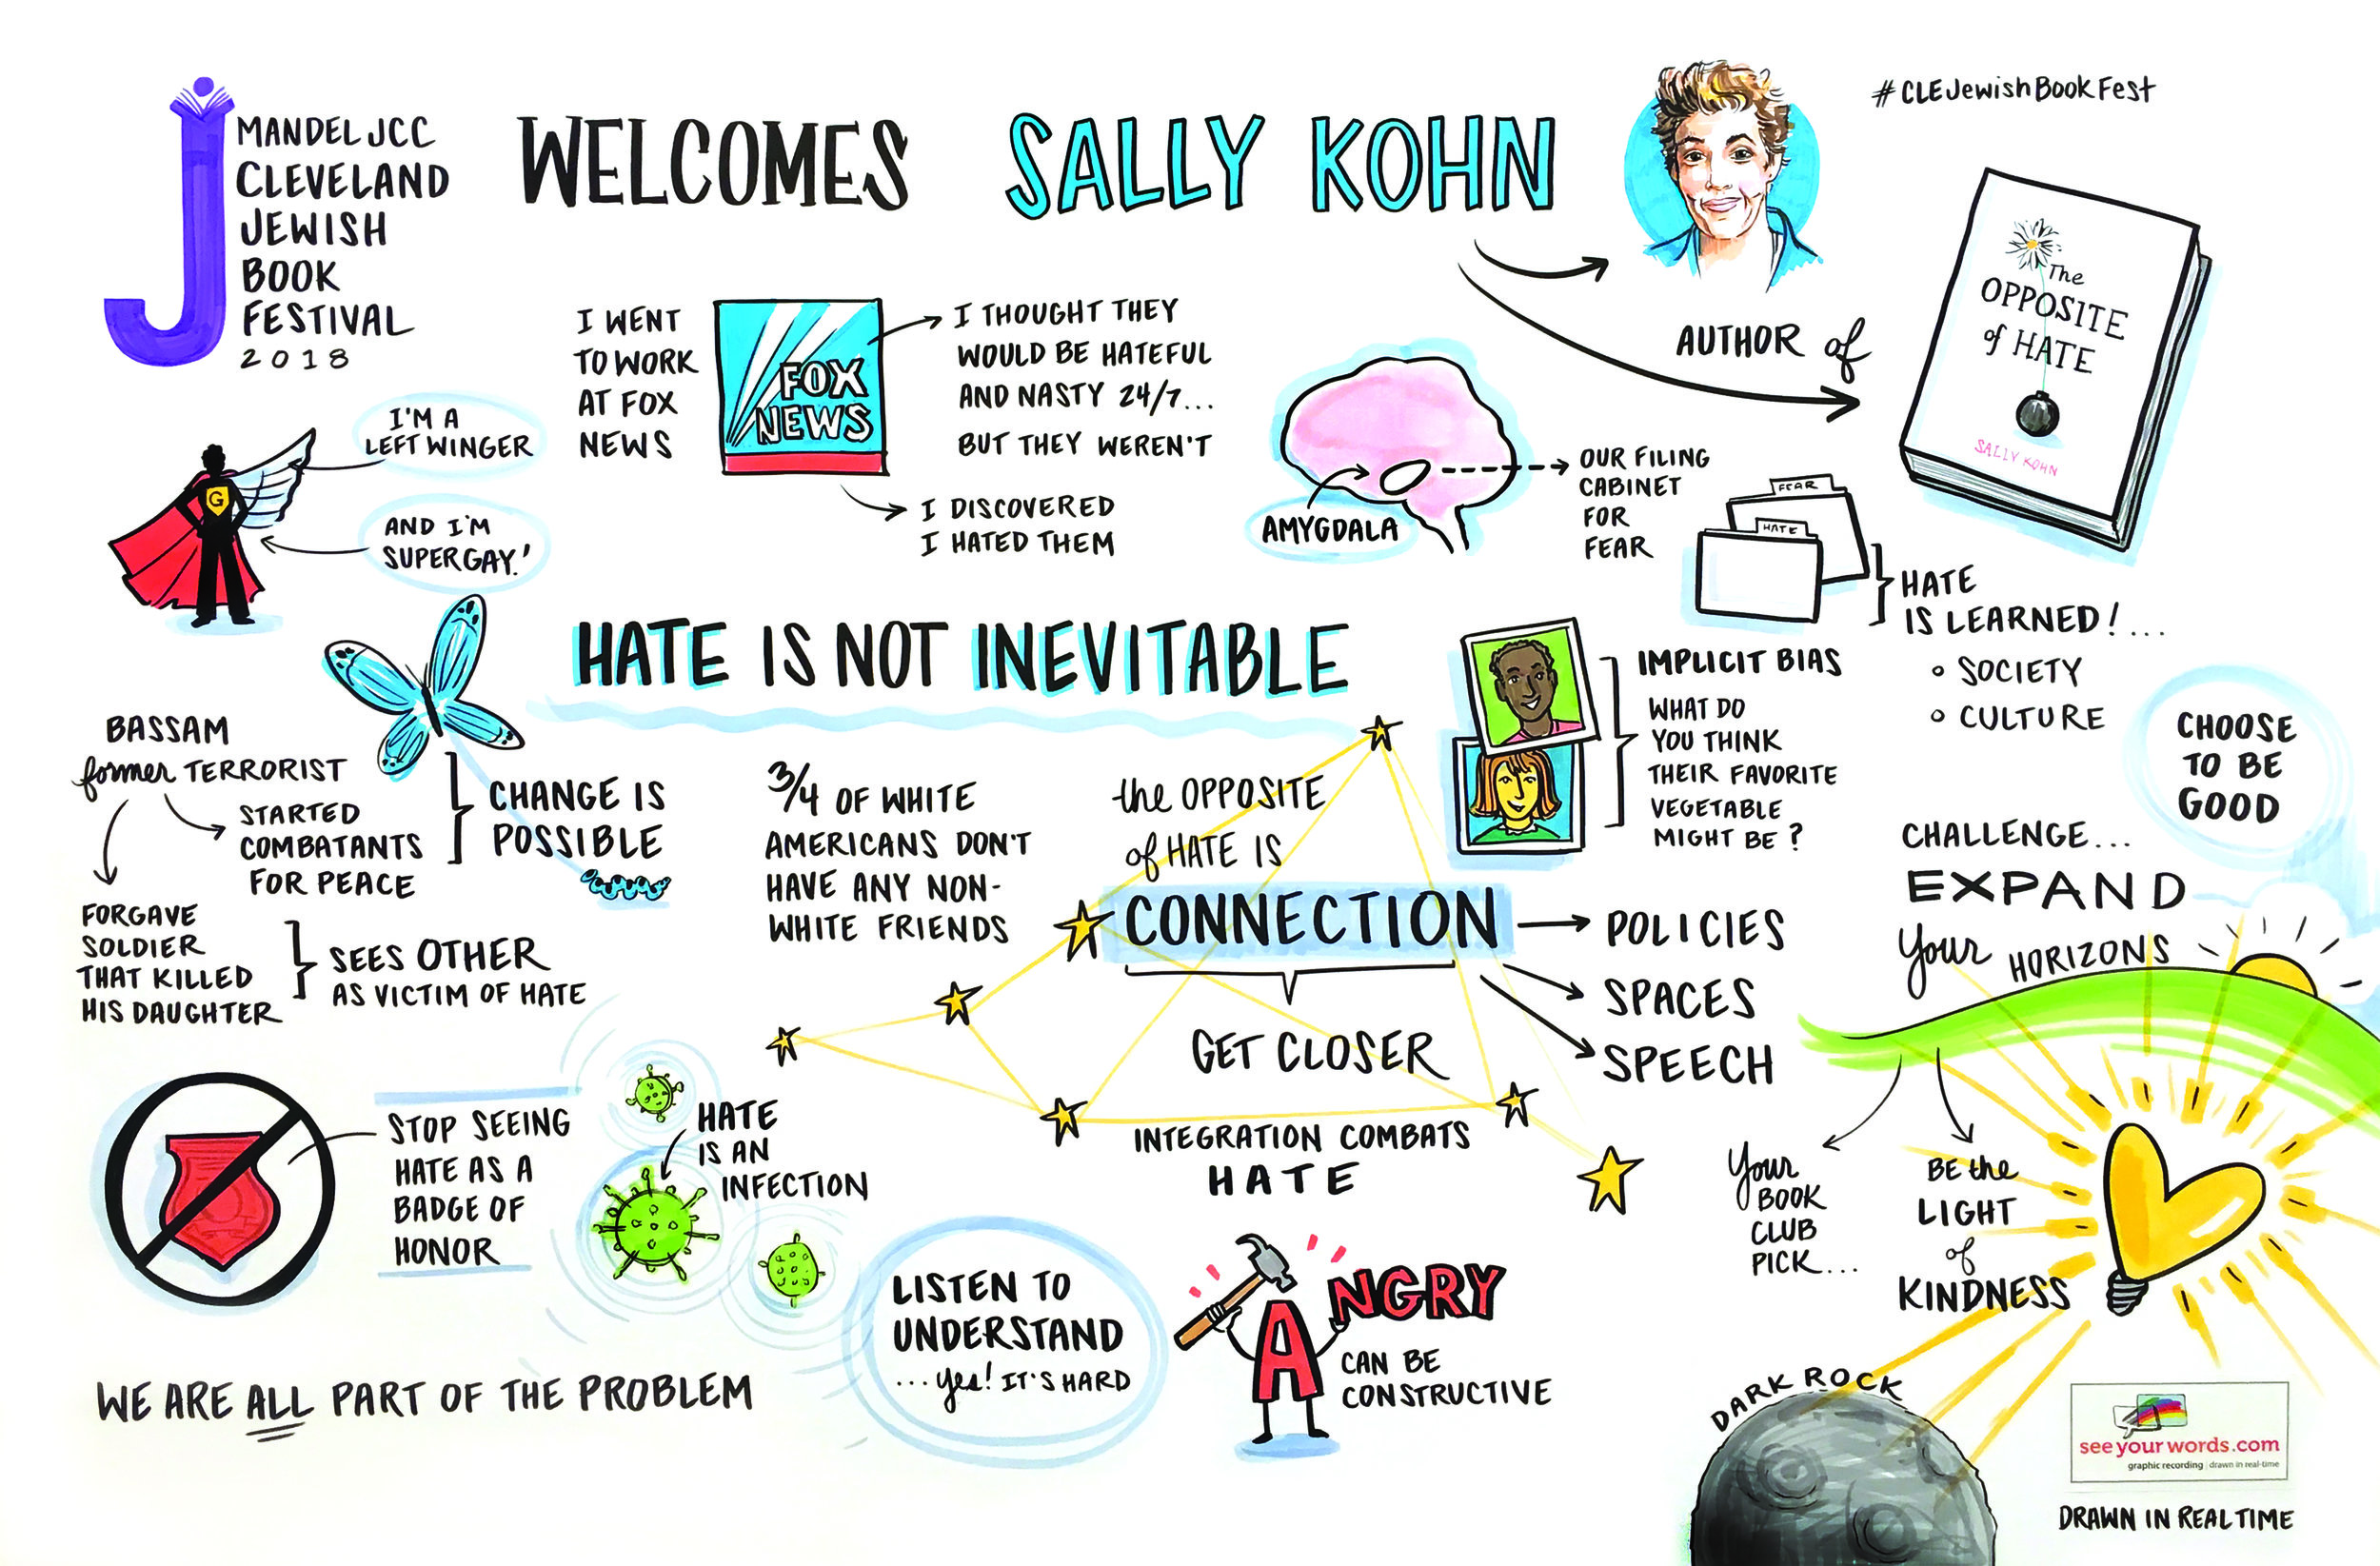 MANDEL JCC
CLEVELAND
JEWISH
BOOK
FESTIVAL
2018
WELCOMES
SALLY KOHN
#CLEJewishBookFest
AUTHOR of
The
OPPOSITE
of HATE
SALLY KOHN
I'M A
LEFT WINGER
G
AND I'M
SUPERGAY!
I WENT
TO WORK
AT FOX
NEWS
FOX
NEWS
I THOUGHT THEY
WOULD BE HATEFUL
AND NASTY 24/7...
BUT THEY WEREN'T
I DISCOVERED
I HATED THEM
AMYGDALA
OUR FILING
CABINET
FOR
FEAR
FEAR
HATE
HATE
IS LEARNED!...
SOCIETY
CULTURE
HATE IS NOT INEVITABLE
BASSAM
former TERRORIST
STARTED
COMBATANTS
FOR PEACE
CHANGE IS
POSSIBLE
FORGAVE
SOLDIER
THAT KILLED
HIS DAUGHTER
SEES OTHER
AS VICTIM OF HATE
3/4 OF WHITE
AMERICANS DON'T
HAVE ANY NON-
WHITE FRIENDS
the OPPOSITE
of HATE IS
CONNECTION
POLICIES
SPACES
SPEECH
GET CLOSER
INTEGRATION COMBATS
HATE
IMPLICIT BIAS
WHAT DO
YOU THINK
THEIR FAVORITE
VEGETABLE
MIGHT BE?
CHOOSE
TO BE
GOOD
CHALLENGE...
EXPAND
your HORIZONS
your
BOOK
CLUB
PICK...
BE the
LIGHT
of
KINDNESS
STOP SEEING
HATE AS A
BADGE OF
HONOR
HATE
IS AN
INFECTION
WE ARE ALL PART OF THE PROBLEM
LISTEN TO
UNDERSTAND
...yes! IT'S HARD
ANGRY
CAN BE
CONSTRUCTIVE
DARK ROCK
seeyourwords.com
graphic recording | drawn in real-time
DRAWN IN REALTIME